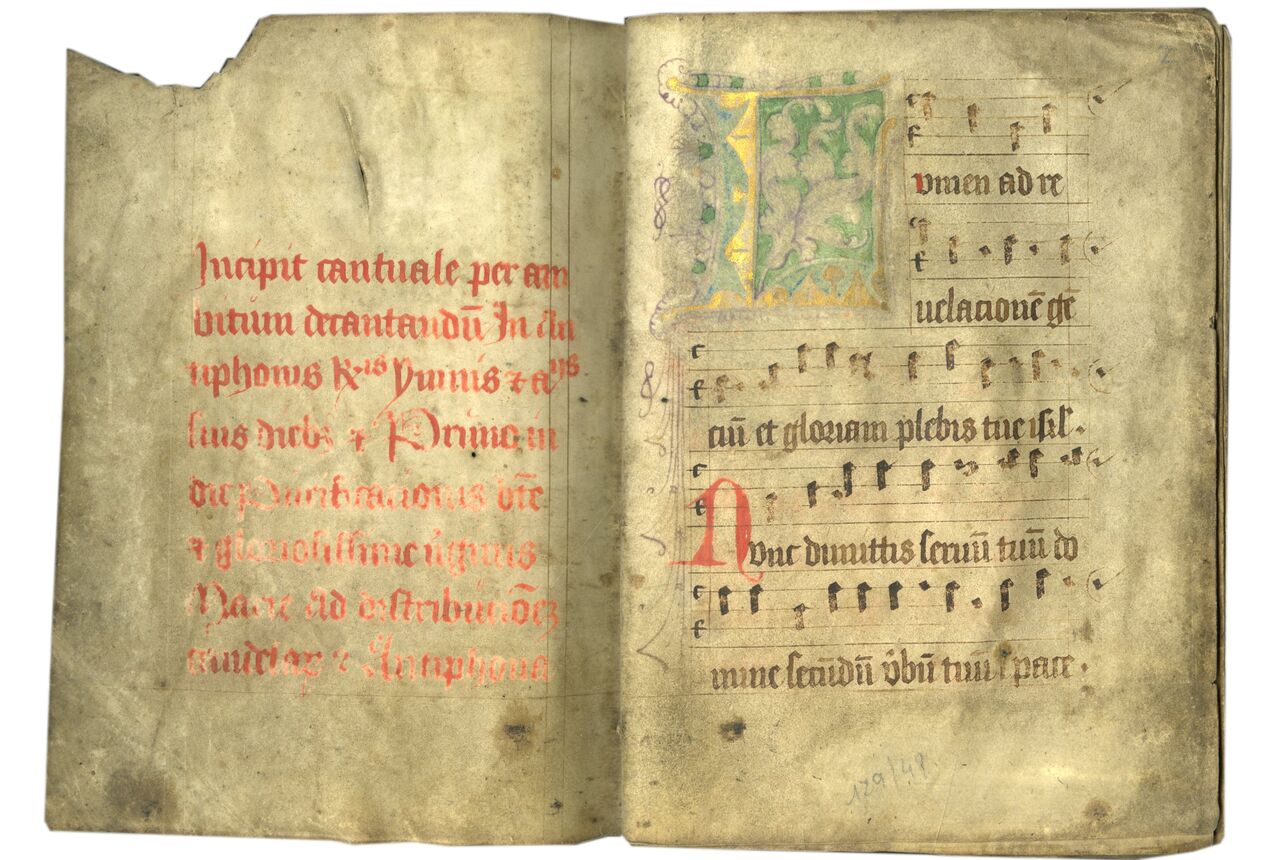 Incipit cantuale per am
bitum decantandū In An
tiphonis Rijs Ymnis & a
suis dieb⁊ ⁊ Primo in
die Purificationis bt̄e
⁊ gloriosissime v̓ginis
Marie Ad distribucōeꝫ
candelaꝝ ⁊ Antiphona
2
Lvmen ad re
uelacionē gē
ciū et gloriam plebis tue isrl̄.
Nvnc dimittis seruū tuū do
mine secūdū v̓bū tuū ī pace.
129/48